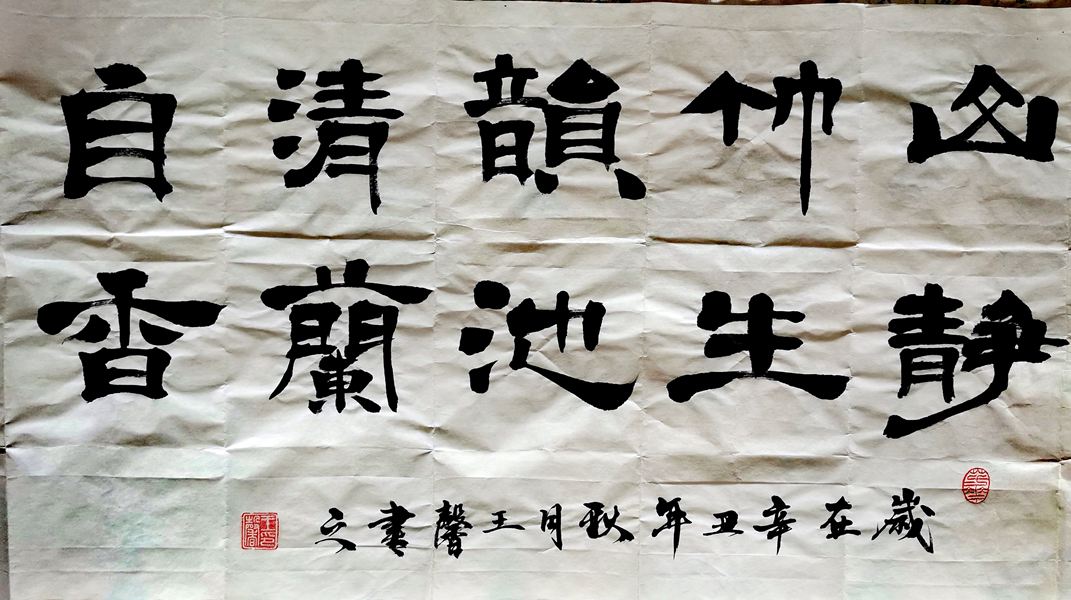 山靜
竹生
韻池
清蘭
自香
歲在辛丑年秋月王馨書之